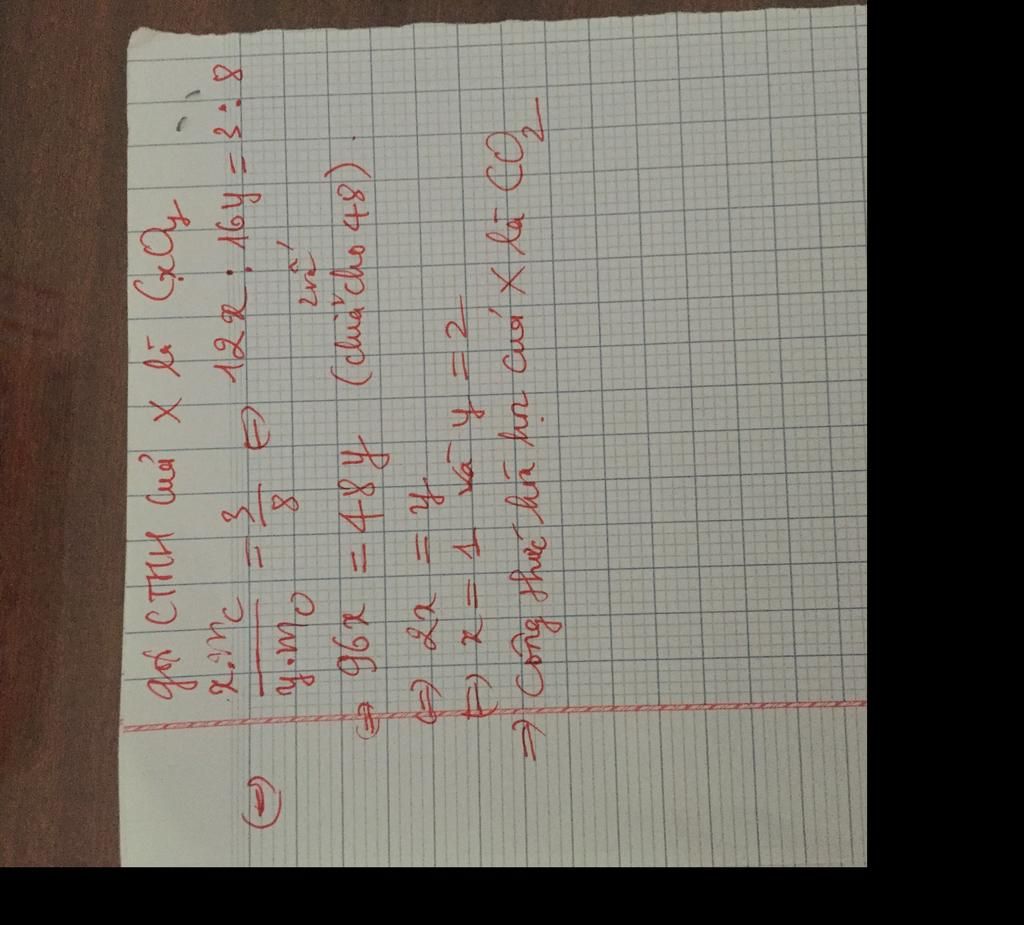 gọi CTHH của X là CxOy
(-) x.mC / y.mO = 3/8 (=) 12x : 16y = 3 : 8
2 vế
(=) 96x = 48y (chia cho 48).
(=) 2x = y
(=) x = 1 và y = 2
=> Công thức hóa học của X là CO2